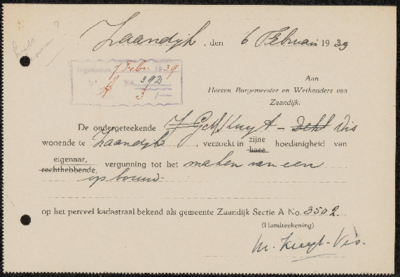 Zaandijk, den 6 Februari 1939
Ingekomen 7 Febr. 1939
No. 392
Aan
Heeren Burgemeester en Wethouders van
Zaandijk.
De ondergeteekende J. Vis
wonende te Zaandijk, verzoekt in zijne hoedanigheid van
haar
eigenaar, vergunning tot het maken van een
rechthebbende,
opbouw.
op het perceel kadastraal bekend als gemeente Zaandijk Sectie A No. 3502.
(Handteekening)
Vis.